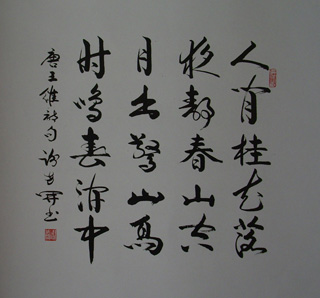 人闲桂花落
夜静春山空
月出驚山鳥
时鸣春涧中
唐王維诗句